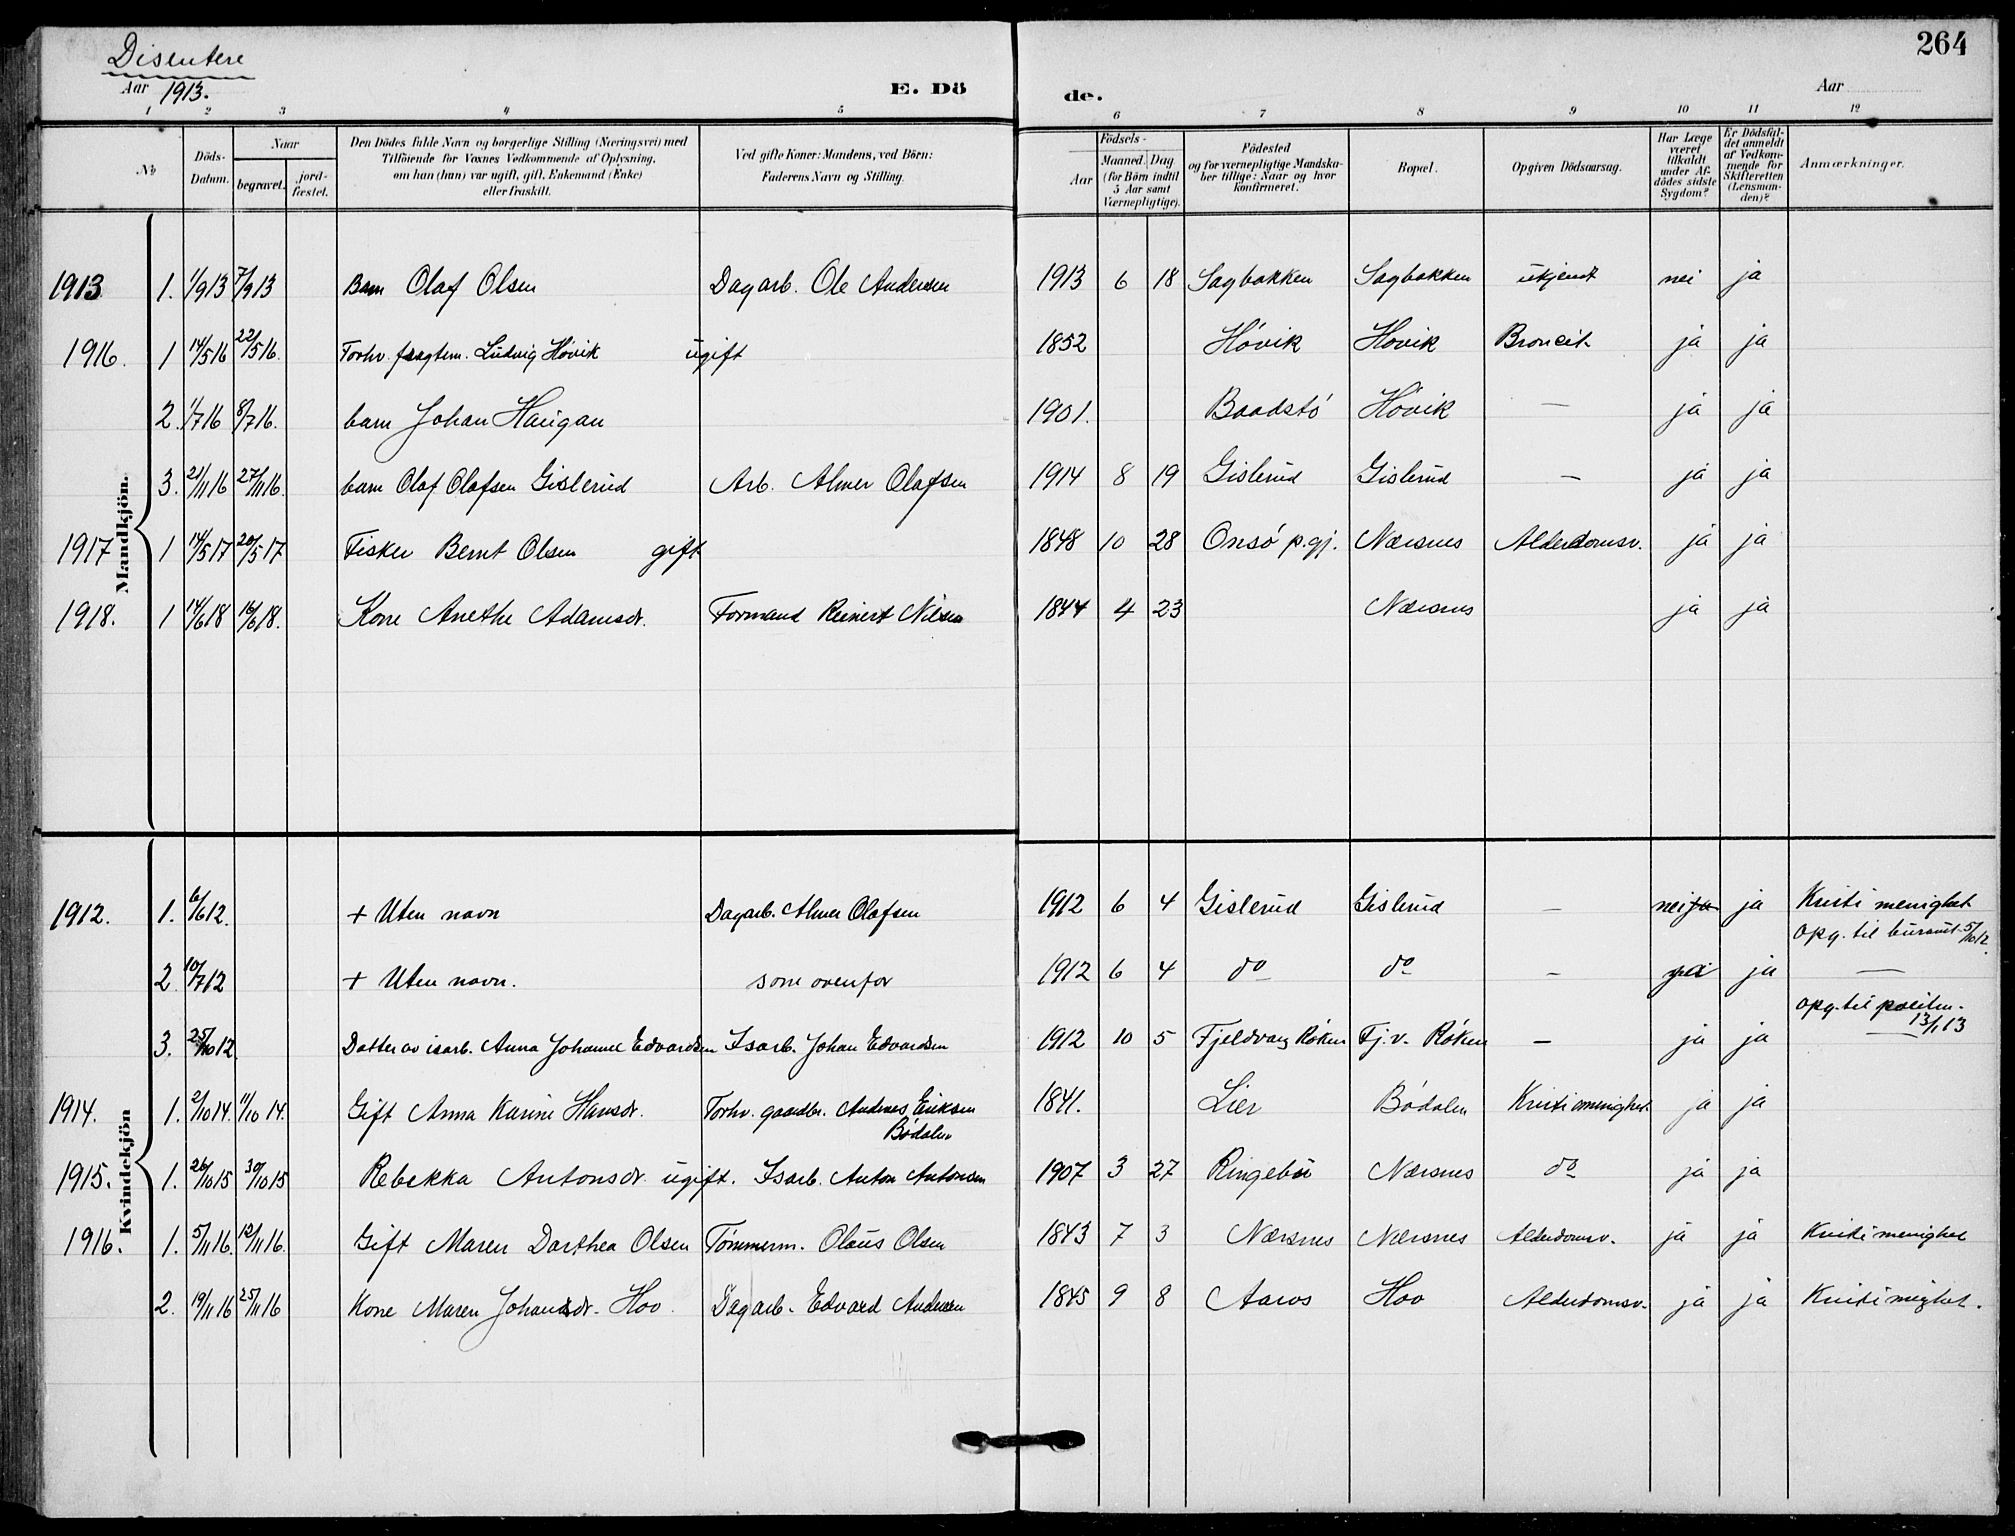 264
Disentere
Aar 1913.
E. Dö
de.
Aar
1 2 3 4 5 6 7 8 9 10 11 12
No
Döds-Datum.
Naar
begravet.
jord-fæstet.
Den Dödes fulde Navn og borgerlige Stilling (Næringsvei) med
Tilföiende for Voxnes Vedkommende af Oplysning,
om han (hun) var ugift, gift, Enkemand (Enke)
eller fraskilt.
Ved gifte Koner: Mandens, ved Börn:
Faderens Navn og Stilling.
Födsels-
Aar
Maaned. Dag
(for Börn indtil
5 Aar samt
Værnepligtige).
Födested
og for værnepligtige Mandska-
ber tillige: Naar og hvor
konfirmeret.
Bopæl.
Opgiven Dödsaarsag.
Har Læge
været
tilkaldt
under Af-
dödes sidste
Sygdom?
Er Dödsfal-
det anmeldt
af Vedkom-
mende for
Skifteretten
(Lensman-
den)?
Anmærkninger.
Mandkjön.
1913 1. 1/9 13 7/9 13 Barn Olaf Olsen Dagarb. Ole Andersen 1913 6 18 Sagbakken Sagbakken ukjendt nei ja
1916. 1 14/5 16 22/5 16. Forhv. fragtem. Ludvig Høvik ugift 1852 Høvik Høvik Broncit ja ja
2. 1/7 16 8/7 16. barn Johan Haugan 1901. Baadstø Høvik — ja ja
3. 21/11 16 27/11 16. barn Olaf Olafsen Gislerud Arb. Almer Olafsen 1914 8 19 Gislerud Gislerud — ja ja
1917 1 14/5 17 20/5 17 Fisker Bernt Olsen gift 1848 10 28 Onsø p.gj. Nærsnes Alderdomsv. ja ja
1918. 1 14/6 18 16/6 18. Kone Anethe Adamsdr. Formand Reinert Nilsen 1844 4 23 Nærsnes ja ja
Kvindekjön
1912. 1. 6/6 12. + Uten navn Dagarb. Almer Olafsen 1912 6 4 Gislerud Gislerud — nei ja ja Kristi menighet
opg. til 5/10 12
2 10/7 12 + Uten navn. som ovenfor 1912 6 4 do do — ja —
opg. til politm.
13/1 13
3. 25/10 12. Datter av isarb. Anna Johanne Edvardsen Isarb. Johan Edvardsen 1912 10 5 Fjeldvang Røken Fj.v. Røken — ja ja
1914. 1. 2/10 14. 11/10 14. Gift Anna Karine Hansdr. Forhv. gaardbr. Andreas Eriksen
Bødalen 1841. Lier Bødalen Kristi menighet ja ja
1915. 1. 26/10 15 30/10 15 Rebekka Antonsdr. ugift. Isarb. Anton Antonsen 1907 3 27 Ringebu Nærsnes do ja ja
1916. 1. 5/11 16. 12/11 16. Gift Maren Dorthea Olsen Tømmerm. Olaus Olsen 1843 7 3 Nærsnes Nærsnes Alderdomsv. ja ja Kristi menighet
2. 19/11 16 25/11 16 Kone Maren Johansdr. Hov Dagarb. Edvard Andersen 1845 9 8 Aaros Hov Alderdomsv. ja ja Kristi menighet.